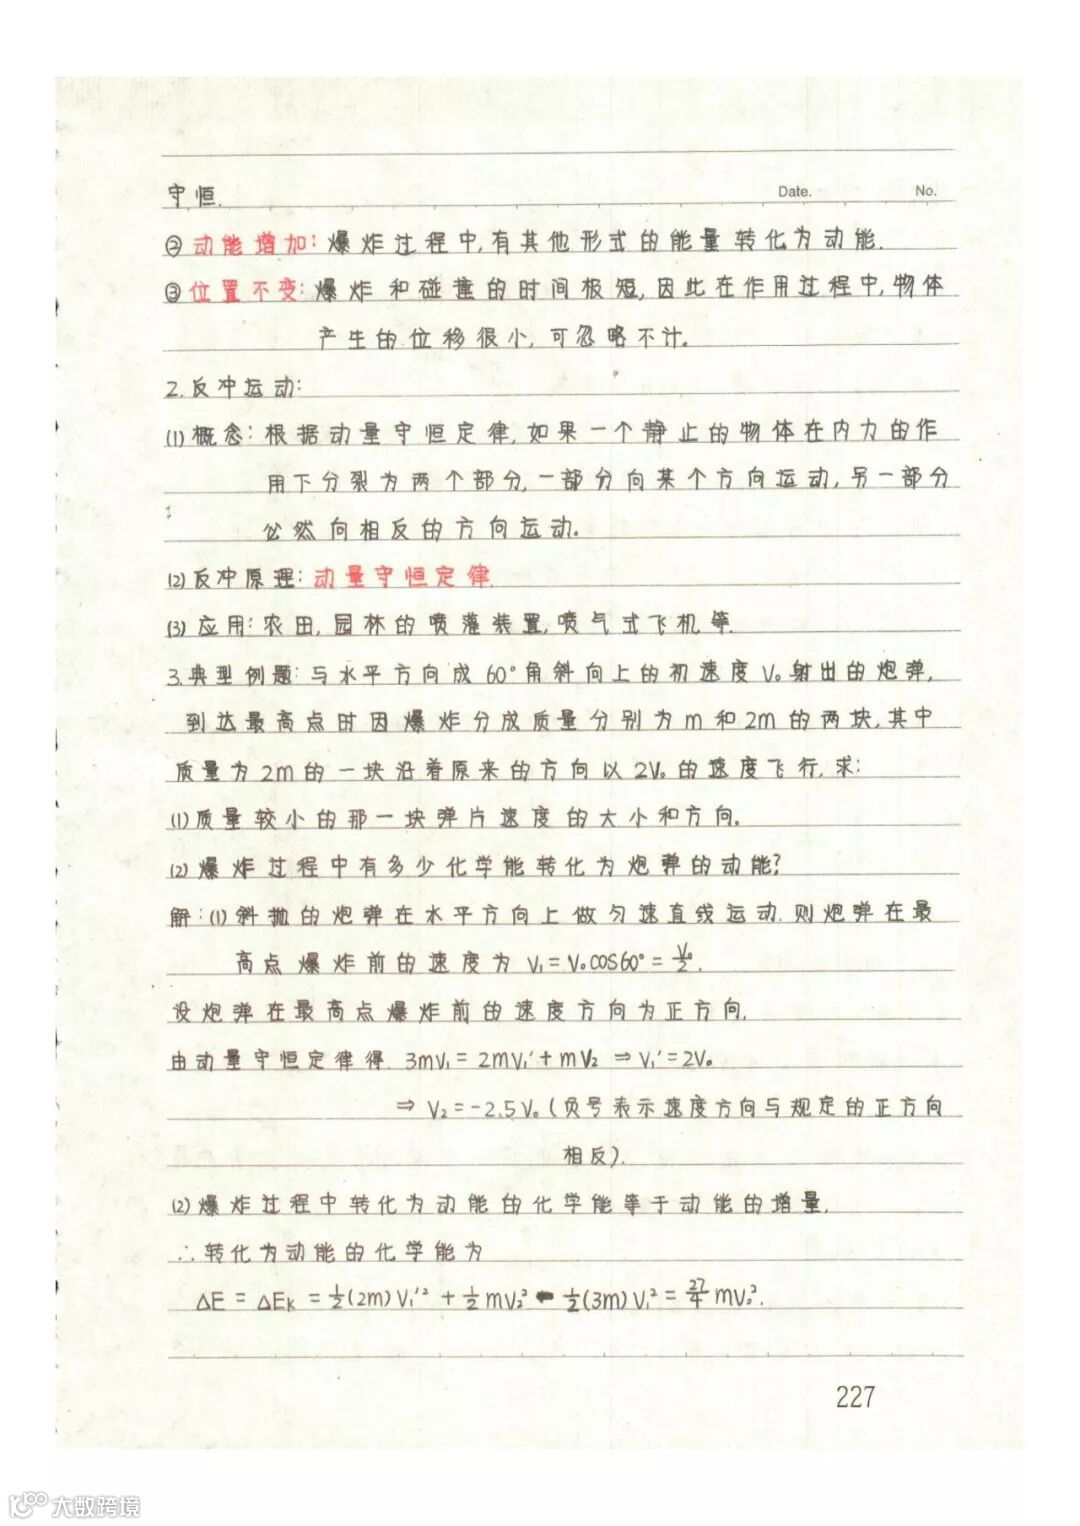 守恒.
Date. No.
②动能增加:爆炸过程中,有其他形式的能量转化为动能.
③位置不变:爆炸和碰撞的时间极短,因此在作用过程中,物体
产生的位移很小,可忽略不计。
2.反冲运动:
(1)概念:根据动量守恒定律,如果一个静止的物体在内力的作
用下分裂为两个部分,一部分向某个方向运动,另一部分
必然向相反的方向运动。
(2)反冲原理:动量守恒定律.
(3)应用:农田,园林的喷灌装置,喷气式飞机等.
3.典型例题:与水平方向成60°角斜向上的初速度V₀射出的炮弹,
到达最高点时因爆炸分成质量分别为m和2m的两块,其中
质量为2m的一块沿着原来的方向以2V₀的速度飞行,求:
(1)质量较小的那一块弹片速度的大小和方向。
(2)爆炸过程中有多少化学能转化为炮弹的动能?
解:(1)斜抛的炮弹在水平方向上做匀速直线运动.则炮弹在最
高点爆炸前的速度为 V₁=V₀cos60°=V₀/2.
设炮弹在最高点爆炸前的速度方向为正方向,
由动量守恒定律得.3mV₁=2mV₁'+mV₂ ⇒V₁'=2V₀
⇒ V₂=-2.5V₀(负号表示速度方向与规定的正方向
相反).
(2)爆炸过程中转化为动能的化学能等于动能的增量,
∴转化为动能的化学能为
ΔE=ΔEk=½(2m)V₁'²+½mV₂²-½(3m)V₁²=27/4mV₀².
227
大数跨境